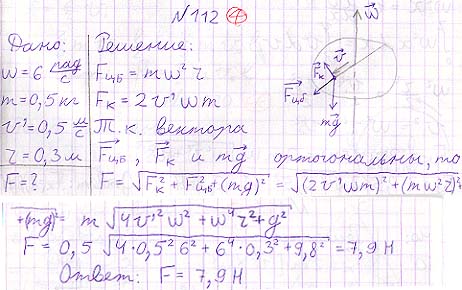 N 112 ④
Дано:
ω = 6 рад/с
m = 0,5 кг
v' = 0,5 м/с
r = 0,3 м
F = ?
Решение:
Fцб = mω²r
Fк = 2v'ωm
Т.к. вектора
Fцб, Fк и mg ортогональны, то
F = √(Fк² + Fцб² + (mg)²) = √((2v'ωm)² + (mω²r)² +
+(mg)² = m √(4v'²ω² + ω⁴r² + g²)
F = 0,5 √(4·0,5² 6² + 6⁴·0,3² + 9,8²) = 7,9 Н
Ответ: F = 7,9 Н
ω
v'
Fк
Fцб
mg